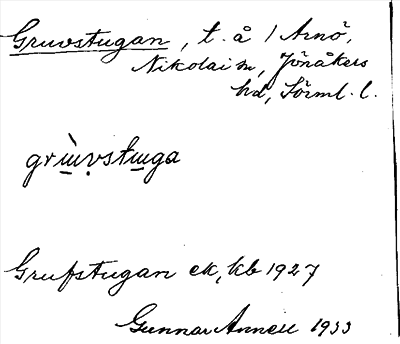 Gruvstugan, t. å 1 Arnö,
Nikolai sn, Jönåkers
hd, Sörml. l.
grùvstuga
Grufstugan ek, kb 1927
Gunnar Annell 1933